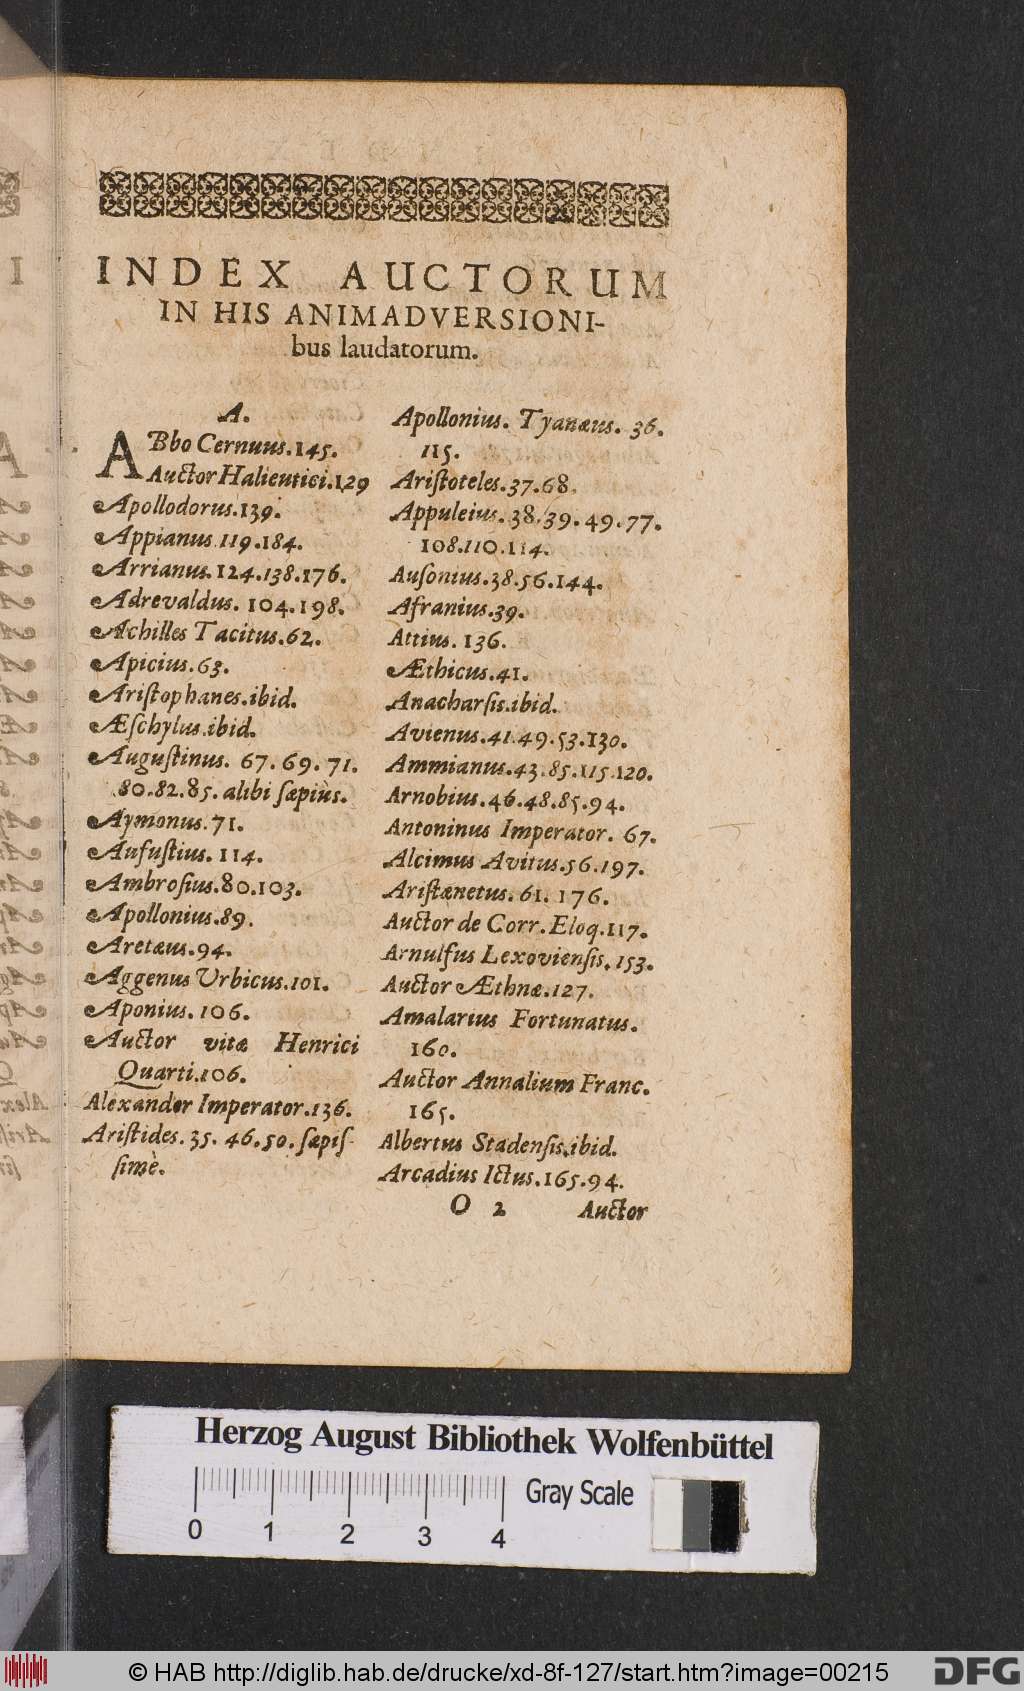 INDEX AUCTORUM
IN HIS ANIMADVERSIONI-
bus laudatorum.
A.
ABbo Cernuus.145.
Auctor Halieutici.129
Apollodorus.139.
Appianus 119.184.
Arrianus.124.138.176.
Adrevaldus. 104.198.
Achilles Tacitus.62.
Apicius.63.
Aristophanes.ibid.
Æschylus.ibid.
Augustinus. 67.69.71.
80.82.85. alibi sæpiùs.
Aymonus.71.
Aufustius.114.
Ambrosius.80.103.
Apollonius.89.
Aretæus.94.
Aggenus Urbicus.101.
Aponius.106.
Auctor vitæ Henrici
Quarti.106.
Alexander Imperator.136.
Aristides. 35. 46.50. sæpis-
simè.
Apollonius. Tyanæus. 36.
115.
Aristoteles.37.68.
Appuleius. 38.39.49.77.
108.110.114.
Ausonius.38.56.144.
Afranius.39.
Attius. 136.
Æthicus.41.
Anacharsis.ibid.
Avienus.41.49.53.130.
Ammianus.43.85.115.120.
Arnobius.46.48.85.94.
Antoninus Imperator. 67.
Alcimus Avitus.56.197.
Aristænetus.61.176.
Auctor de Corr. Eloq.117.
Arnulfus Lexoviensis.153.
Auctor Æthnæ.127.
Amalarius Fortunatus.
160.
Auctor Annalium Franc.
165.
Albertus Stadensis.ibid.
Arcadius Ictus.165.94.
O 2 Auctor
Herzog August Bibliothek Wolfenbüttel
Gray Scale
0 1 2 3 4
© HAB http://diglib.hab.de/drucke/xd-8f-127/start.htm?image=00215
DFG